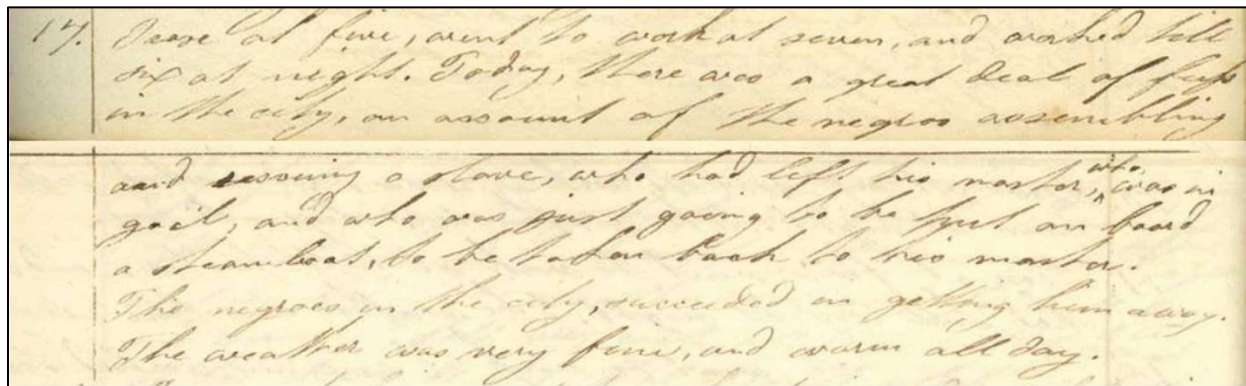 17. I rose at five, went to work at seven, and worked till
six at night. Today, there was a great deal of fuss
in the city, on account of the negros assembling
and rescuing a slave, who had left his master, who was in
gaol, and who was just going to be put on board
a steamboat, to be taken back to his master.
The negroes in the city, succeeded in getting him away.
The weather was very fine, and warm all day.